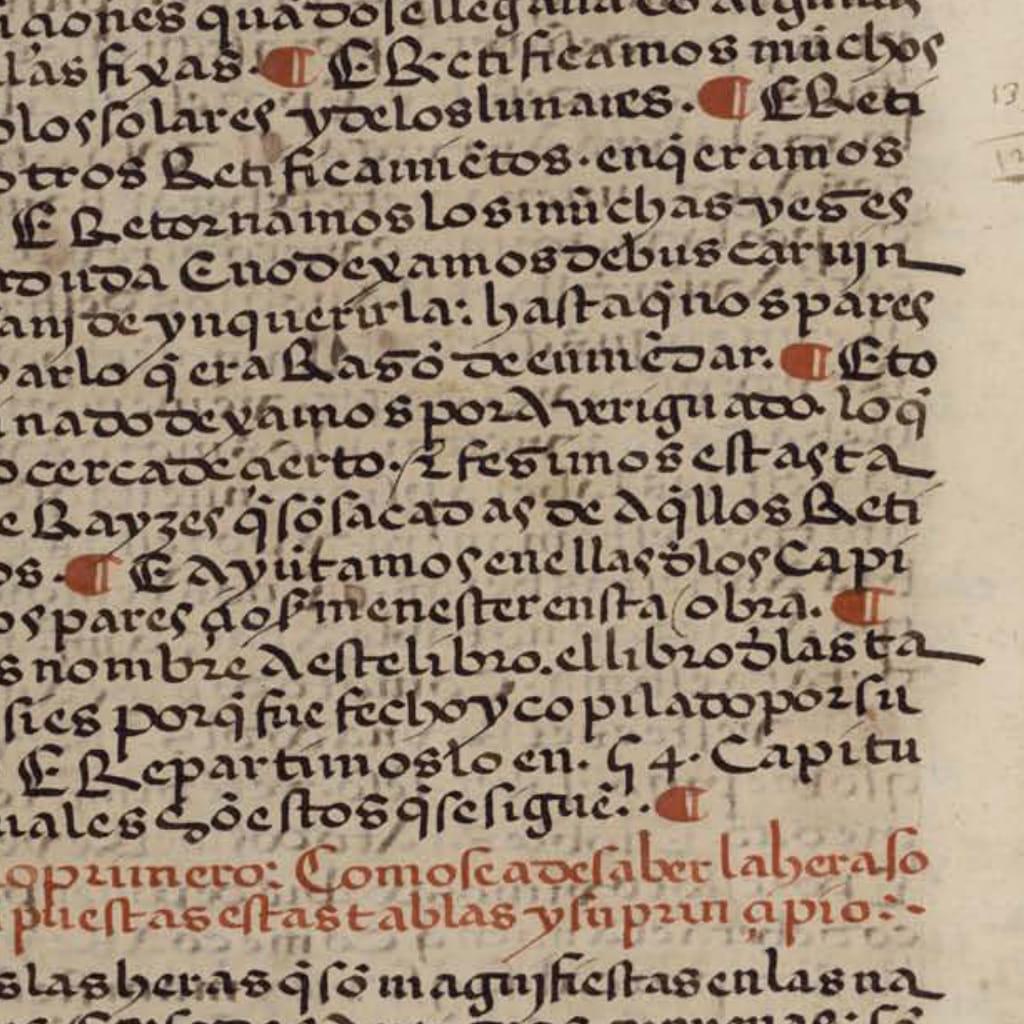 iaones quādo se llegaua cō algunas
las fixas. ¶ E Retificamos muchos
los solares y de los lunares. ¶ E Reti
otros Retificamiētos. en q̄ eramos
E Retornamos los muchas veses
duda E no dexamos de buscar nj n
anj de ynquerirla: hasta q̄ nos pares
arlo q̄ era Rasō de enmēdar. ¶ E to
nado dexamos por Averiguado. lo q̄
o cerca de aerto. ⁊ fesimos estas ta
e Rayzes q̄ sō sacadas de Aq̄llos Reti
os. ¶ E Ayūtamos en ellas d̄ los Capi
os pares menester en sta obra. ¶
s nombre A este libro. el libro d̄ las ta
si es porq̄ fue fecho y copilado por su
E Repartimos lo en. 54. Capitu
uales sō estos q̄ se siguē. ¶
o primero: Como se a de saber la hera so
puestas estas tablas y su prinçipio:
s las heras q̄ sō magnjfiestas en las na
13
12